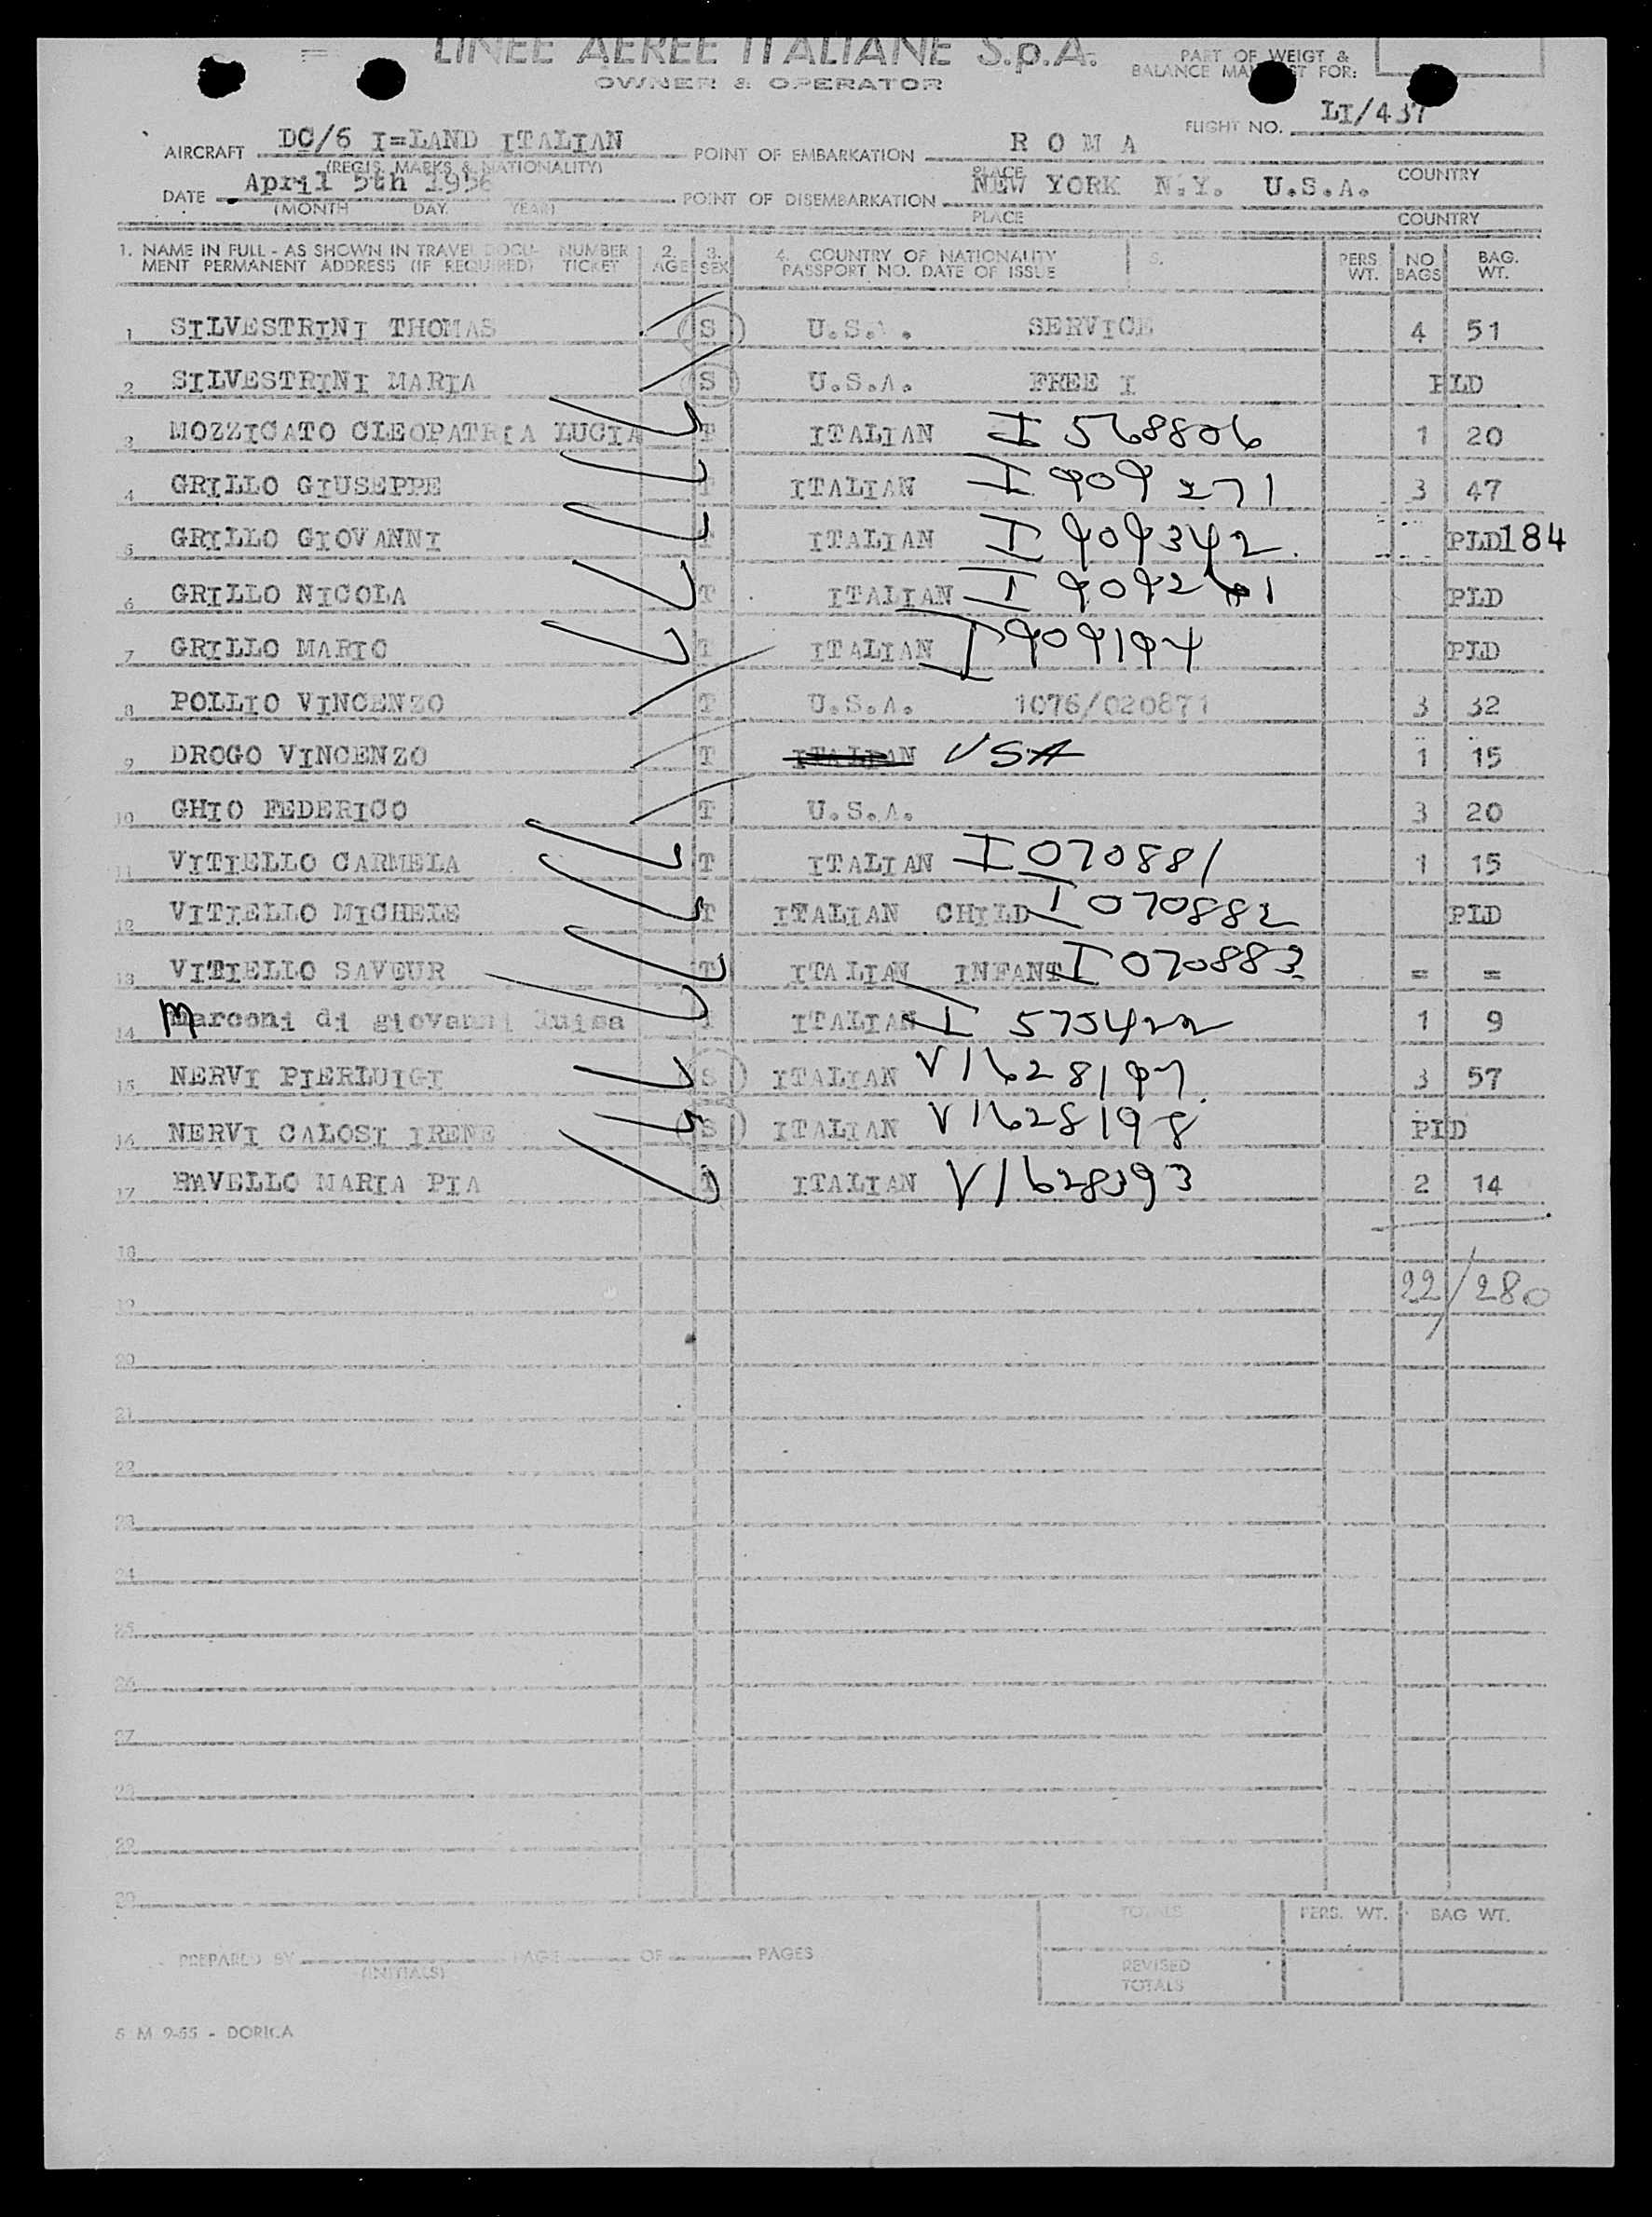 LINEE AEREE ITALIANE S.p.A.
OWNER & OPERATOR
PART OF WEIGT &
BALANCE MANIFEST FOR:
AIRCRAFT DC/6 I=LAND ITALIAN POINT OF EMBARKATION R O M A FLIGHT NO. LI/437
(REGIS. MARKS & NATIONALITY) PLACE COUNTRY
DATE April 5th 1956 POINT OF DISEMBARKATION NEW YORK N.Y. U.S.A.
(MONTH DAY YEAR) PLACE COUNTRY
1. NAME IN FULL - AS SHOWN IN TRAVEL DOCU- NUMBER 2. 3. 4. COUNTRY OF NATIONALITY 5. PERS. NO BAG.
MENT PERMANENT ADDRESS (IF REQUIRED) TICKET AGE SEX PASSPORT NO. DATE OF ISSUE WT. BAGS WT.
1 SILVESTRINI THOMAS S U.S.A. SERVICE 4 51
2 SILVESTRINI MARIA S U.S.A. FREE I PLD
3 MOZZICATO CLEOPATRIA LUCIA T ITALIAN I 568806 1 20
4 GRILLO GIUSEPPE T ITALIAN I 909271 3 47
5 GRILLO GIOVANNI T ITALIAN I 909342 PLD184
6 GRILLO NICOLA T ITALIAN I 9092 1 PLD
7 GRILLO MARIO T ITALIAN I 909194 PLD
8 POLLIO VINCENZO T U.S.A. 1076/020871 3 32
9 DROGO VINCENZO T ITALIAN USA 1 15
10 GHIO FEDERICO T U.S.A. 3 20
11 VITIELLO CARMELA T ITALIAN I 070881 1 15
12 VITIELLO MICHELE T ITALIAN CHILD I 070882 PLD
13 VITIELLO SAVEUR T ITALIAN INFANT I 070883 = =
14 Marconi di giovanni luisa T ITALIAN I 575422 1 9
15 NERVI PIERLUIGI S ITALIAN V1628197 3 57
16 NERVI CALOSI IRENE S ITALIAN V1628198 PLD
17 RAVELLO MARIA PIA T ITALIAN V1628393 2 14
18
19 22/280
20
21
22
23
24
25
26
27
28
29
30
TOTALS PERS. WT. BAG WT.
PREPARED BY PAGE OF PAGES
(INITIALS)
REVISED
TOTALS
5 M 9-55 - DORICA